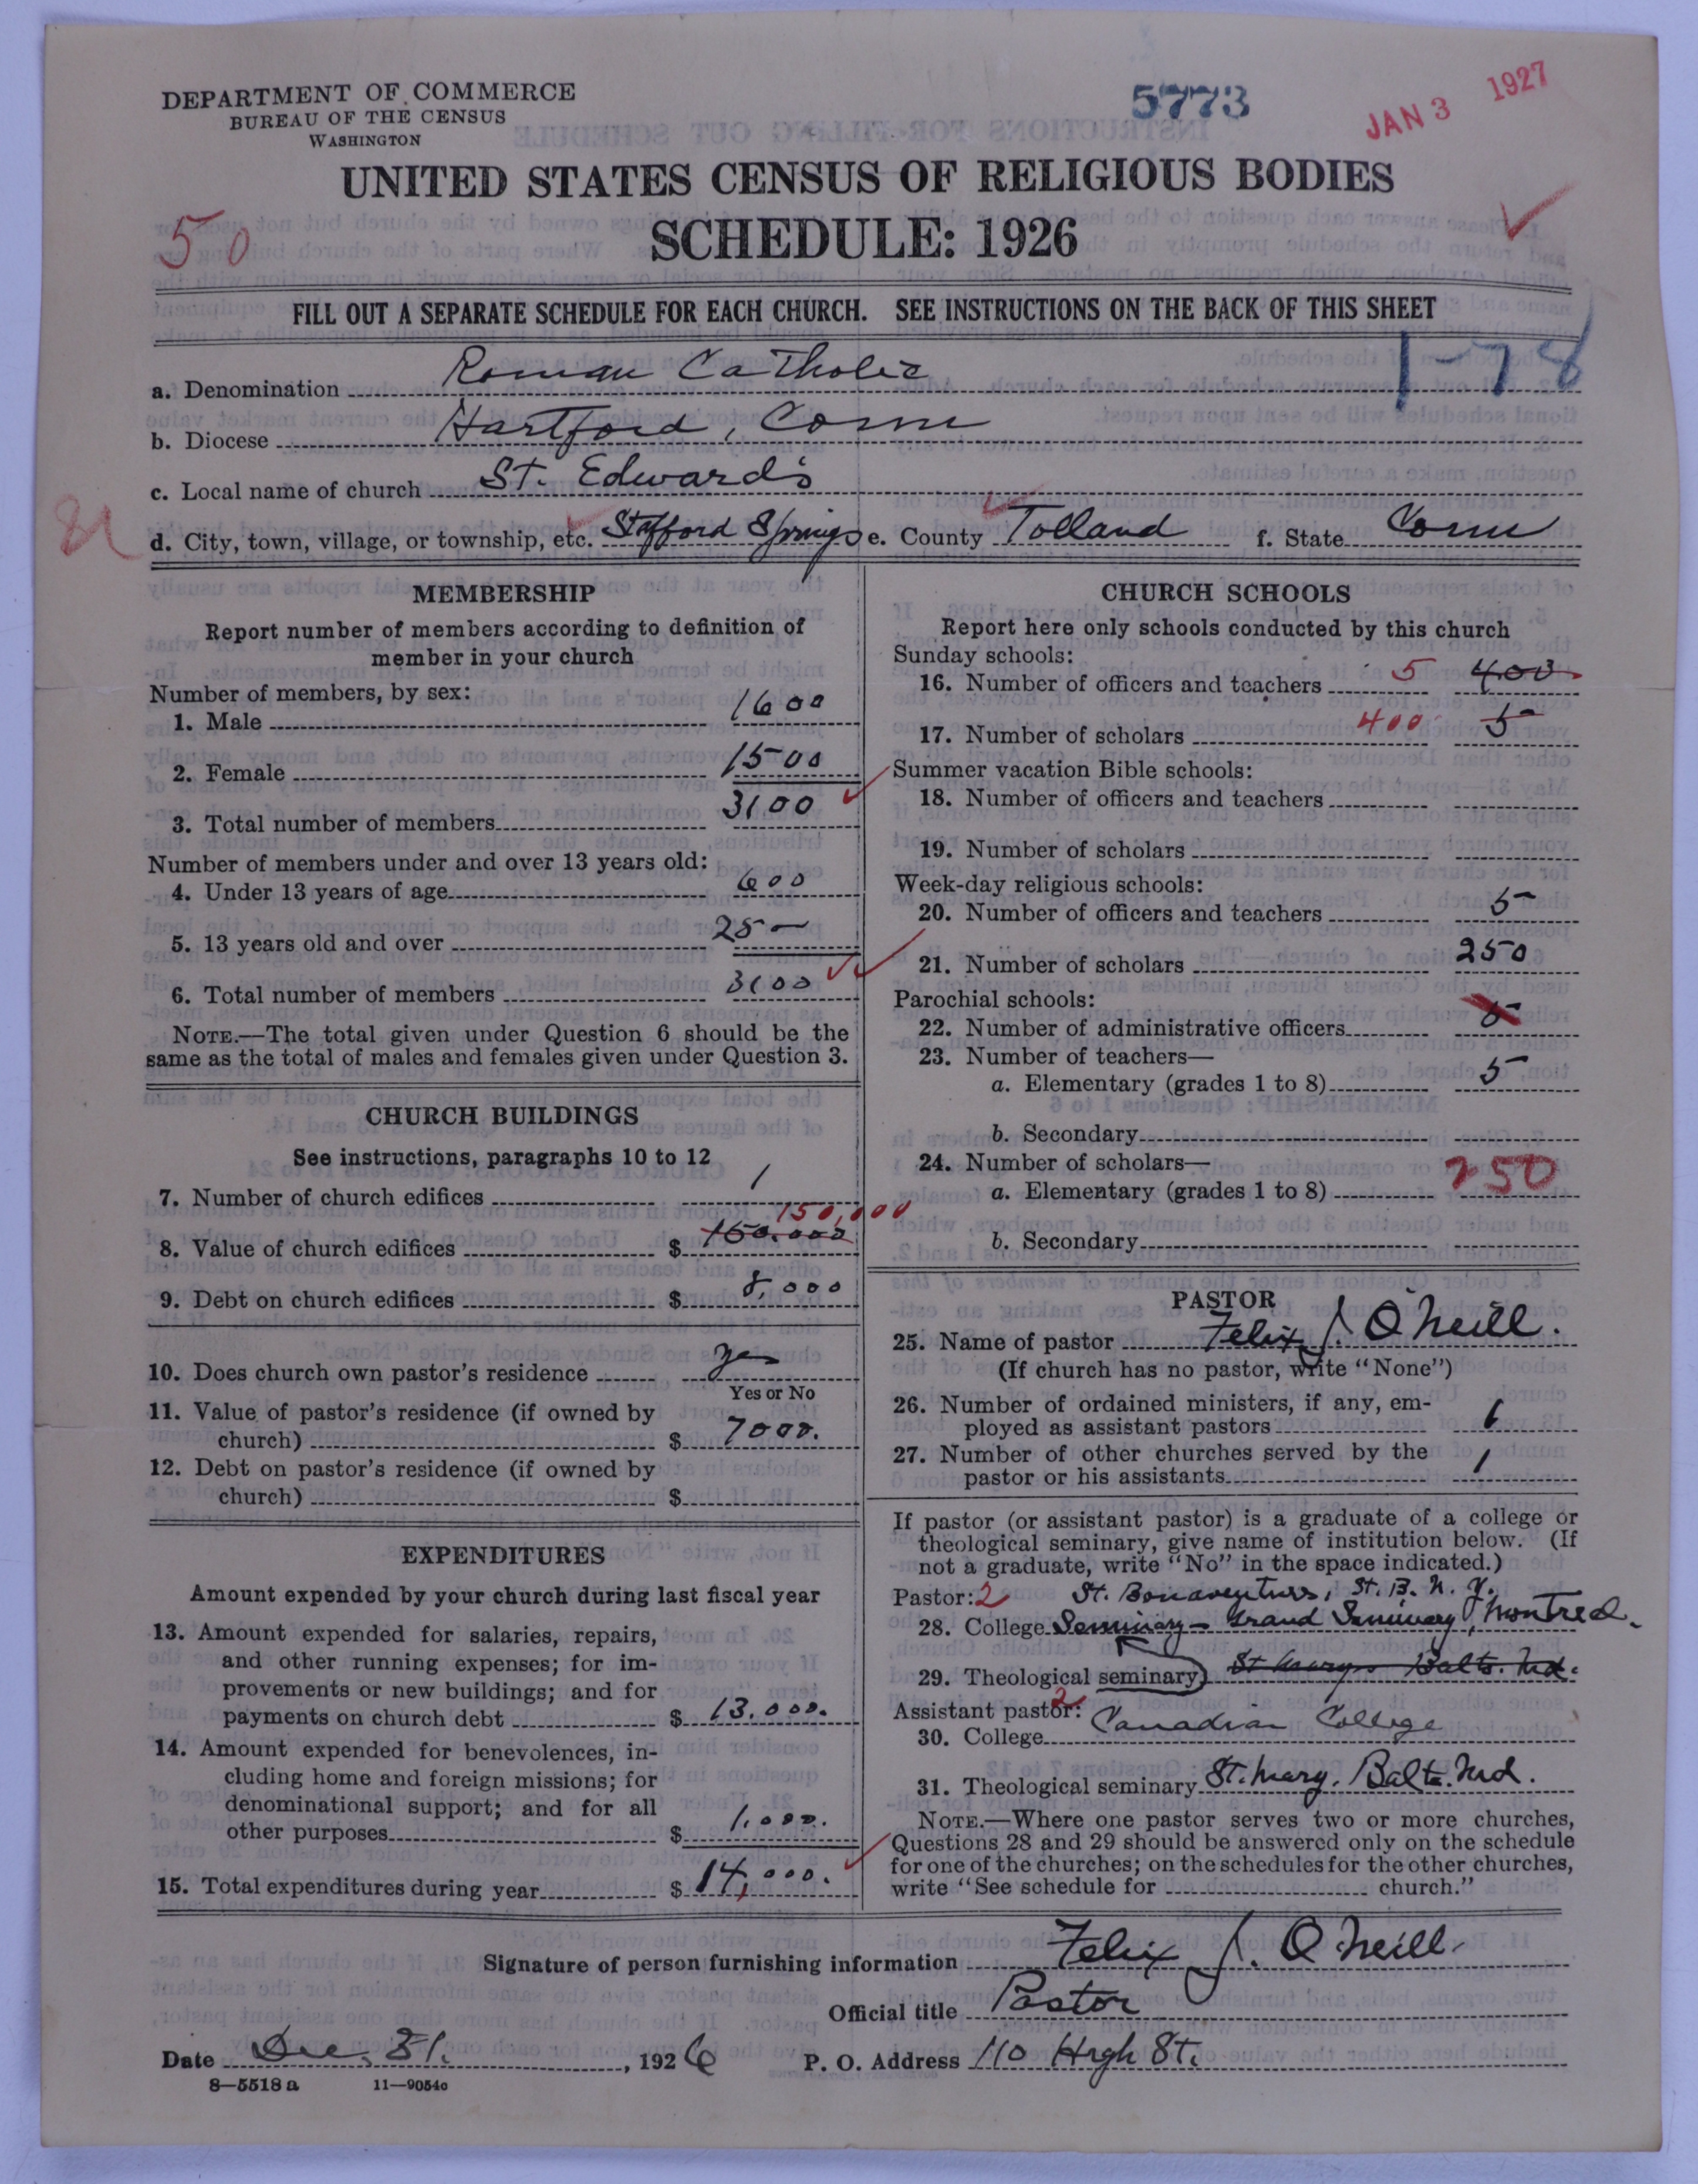 DEPARTMENT OF COMMERCE
BUREAU OF THE CENSUS
WASHINGTON
5773
JAN 3 1927
UNITED STATES CENSUS OF RELIGIOUS BODIES
SCHEDULE: 1926
50
FILL OUT A SEPARATE SCHEDULE FOR EACH CHURCH. SEE INSTRUCTIONS ON THE BACK OF THIS SHEET
1-78
a. Denomination Roman Catholic
b. Diocese Hartford, Conn
c. Local name of church St. Edward's
d. City, town, village, or township, etc. Stafford Springs e. County Tolland f. State Conn
MEMBERSHIP
Report number of members according to definition of
member in your church
Number of members, by sex:
1. Male 1600
2. Female 1500
3. Total number of members 3100
Number of members under and over 13 years old:
4. Under 13 years of age 600
5. 13 years old and over 25—
6. Total number of members 3100
NOTE.—The total given under Question 6 should be the
same as the total of males and females given under Question 3.
CHURCH BUILDINGS
See instructions, paragraphs 10 to 12
7. Number of church edifices 1
150,000
8. Value of church edifices $ 150.000
9. Debt on church edifices $ 8,000
10. Does church own pastor's residence yes
Yes or No
11. Value of pastor's residence (if owned by
church) $ 7000.
12. Debt on pastor's residence (if owned by
church) $
EXPENDITURES
Amount expended by your church during last fiscal year
13. Amount expended for salaries, repairs,
and other running expenses; for im-
provements or new buildings; and for
payments on church debt $ 13.000.
14. Amount expended for benevolences, in-
cluding home and foreign missions; for
denominational support; and for all
other purposes $ 1,000.
15. Total expenditures during year $ 14,000.
CHURCH SCHOOLS
Report here only schools conducted by this church
Sunday schools:
16. Number of officers and teachers 5 400
17. Number of scholars 400 5
Summer vacation Bible schools:
18. Number of officers and teachers
19. Number of scholars
Week-day religious schools:
20. Number of officers and teachers 5
21. Number of scholars 250
Parochial schools:
22. Number of administrative officers 5
23. Number of teachers—
a. Elementary (grades 1 to 8) 5
b. Secondary
24. Number of scholars—
a. Elementary (grades 1 to 8) 250
b. Secondary
PASTOR
25. Name of pastor Felix J. O'Neill.
(If church has no pastor, write "None")
26. Number of ordained ministers, if any, em-
ployed as assistant pastors 1
27. Number of other churches served by the
pastor or his assistants 1
If pastor (or assistant pastor) is a graduate of a college or
theological seminary, give name of institution below. (If
not a graduate, write "No" in the space indicated.)
Pastor: 2 St. Bonaventurs, St. B. N. Y.
28. College Seminary - Grand Seminary, Montreal.
29. Theological seminary St Marys Balto. Md.
Assistant pastor: 2
30. College Canadian College
31. Theological seminary St. Mary. Balto. Md.
NOTE.—Where one pastor serves two or more churches,
Questions 28 and 29 should be answered only on the schedule
for one of the churches; on the schedules for the other churches,
write "See schedule for church."
Signature of person furnishing information Felix J. O'Neill
Official title Pastor
Date Dec. 31. , 1926 P. O. Address 110 High St.
8—5518 a 11—9054o